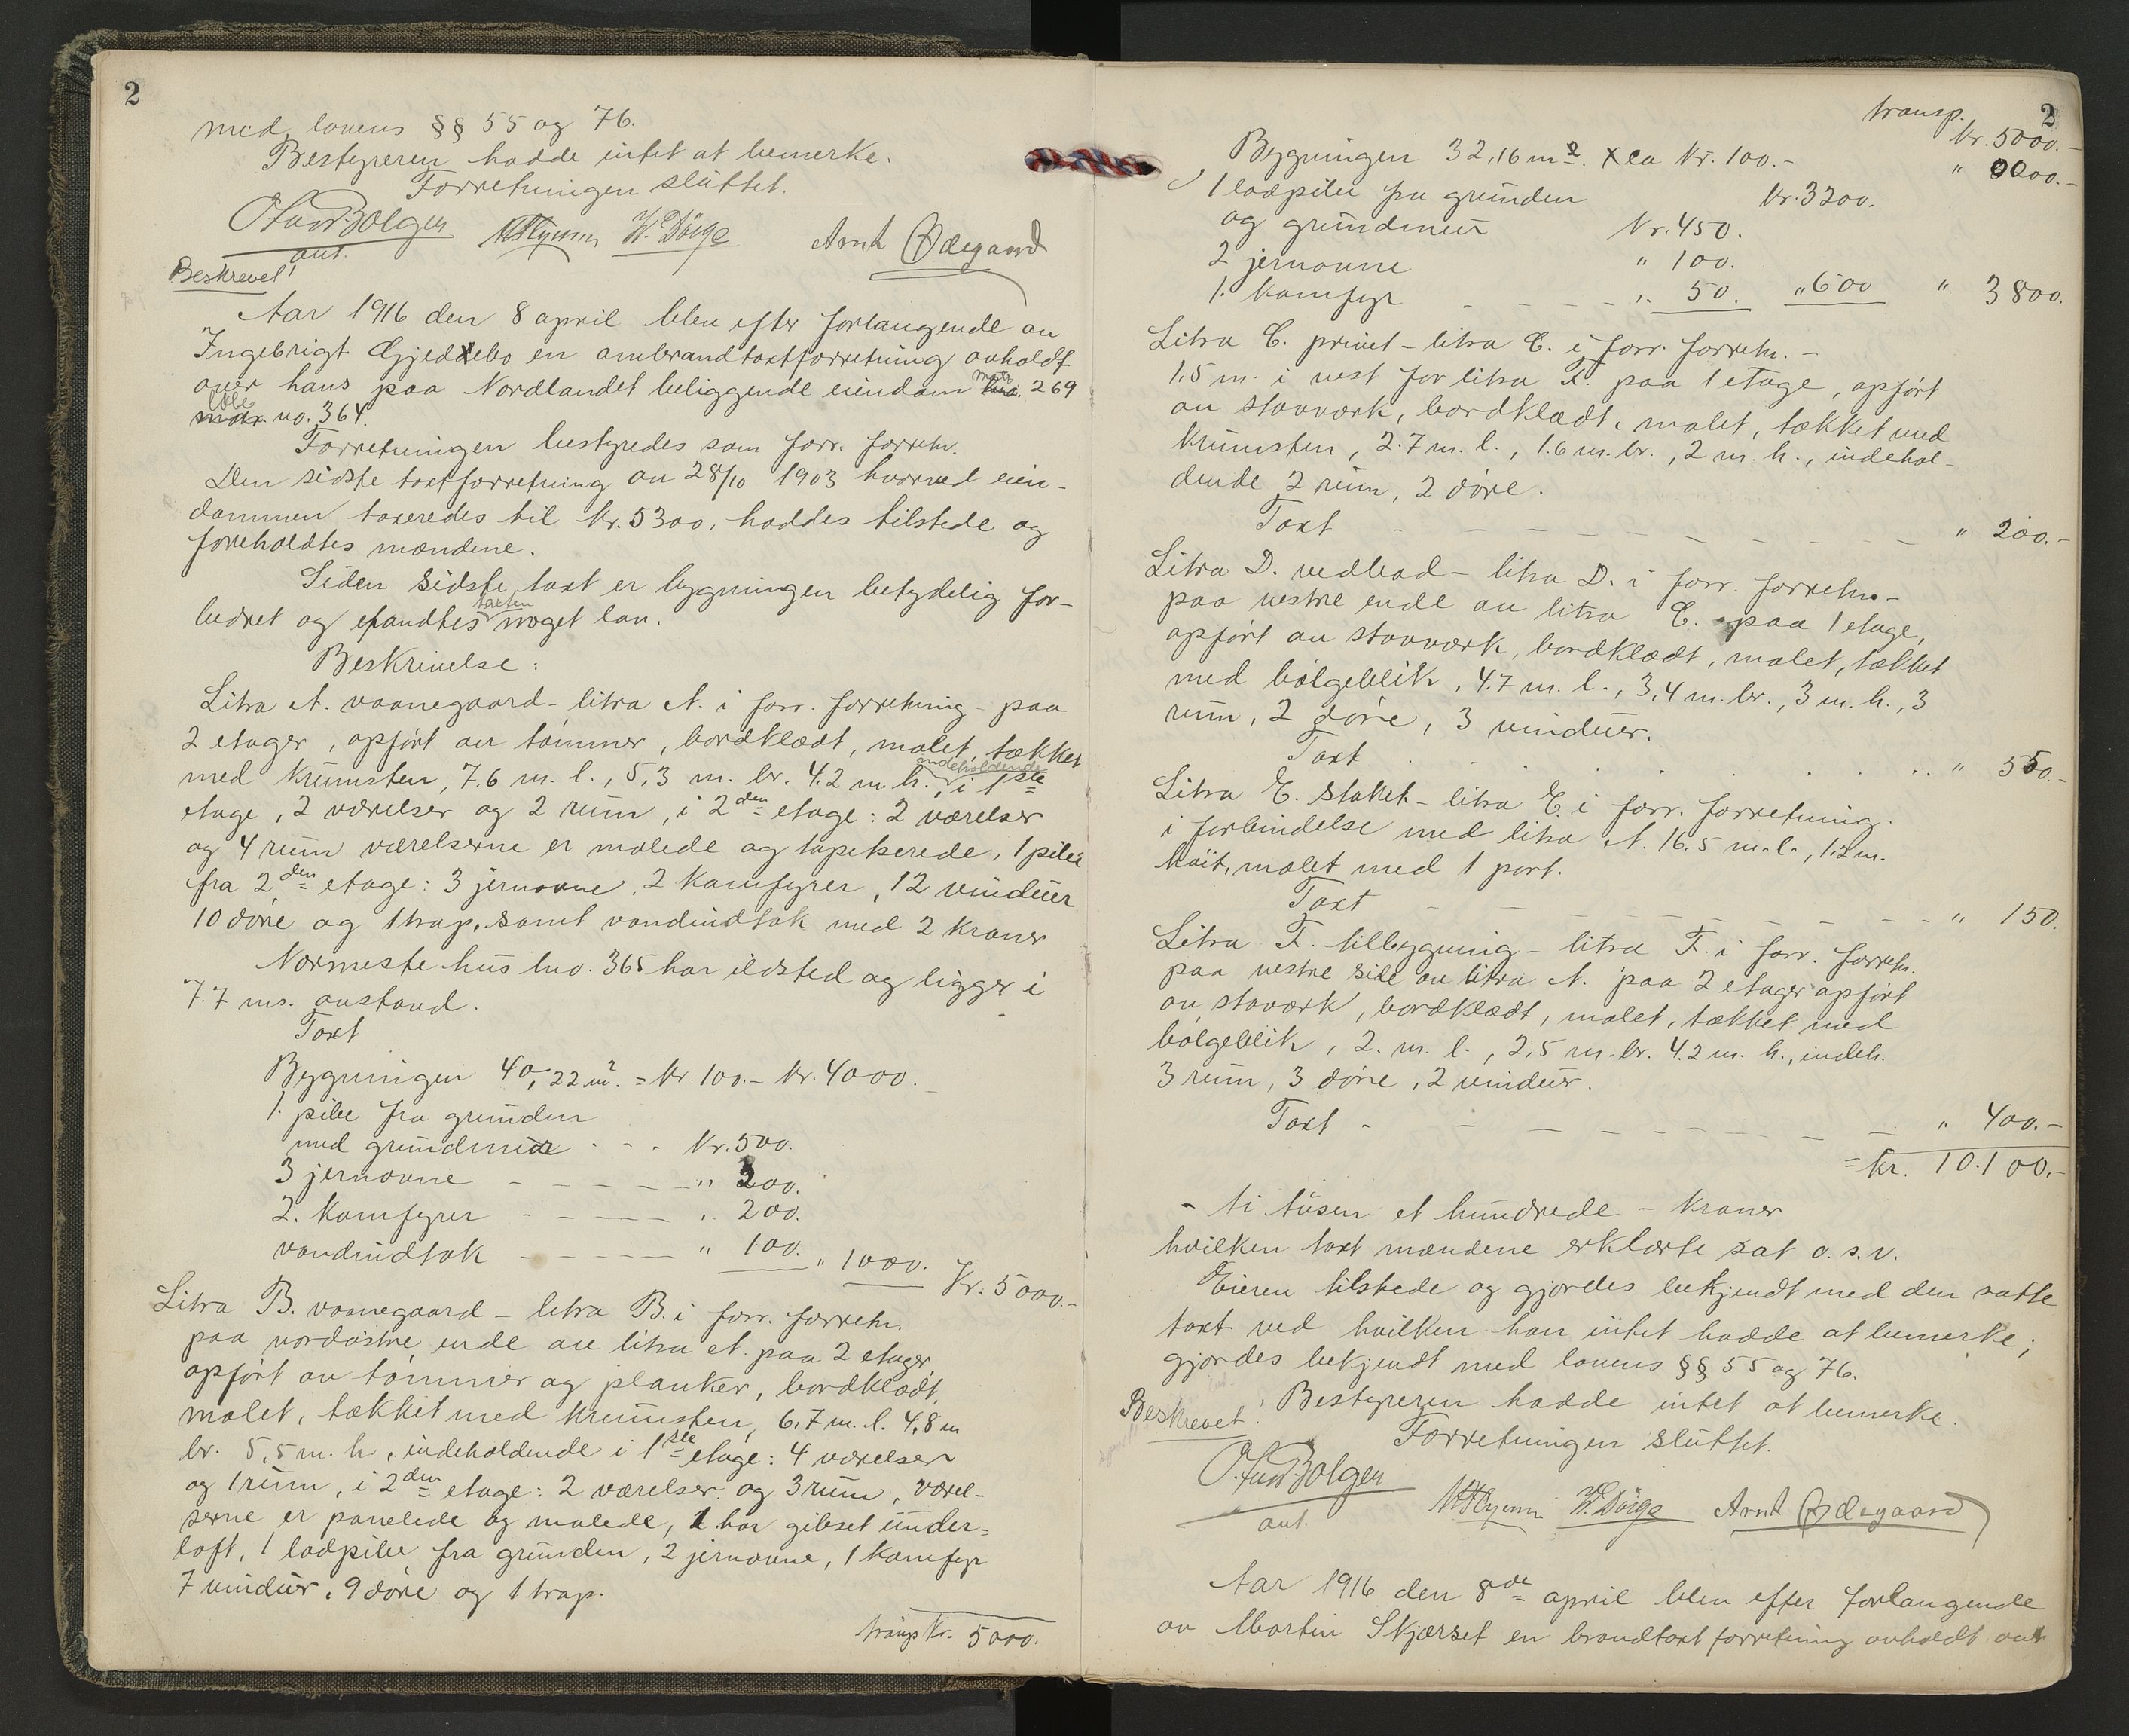 2
med lovens §§ 55 og 76.
Bestyreren hadde intet at bemerke.
Forretningen sluttet.
Bolgen
aut.
W. Dörge
Arnt Ødegaard
Beskrevet!
Aar 1916 den 8 april blev efter forlangende av
Ingebrigt Gjedebo en ombrandtaxtforretning avholdt
over hans paa Nordlandet beliggende eiendom matr. 269
löbe no. 364.
Forretningen bestyredes som forr. forretn.
Den sidste taxtforretning av 28/10 1903 hvorved eien-
dommen taxeredes til kr. 5300, haddes tilstede og
foreholdtes mændene.
Siden sidste taxt er bygningen betydelig for-
bedret og fandtes taxten noget lav.
Beskrivelse:
Litra A. vaanegaard - litra A. i forr. forretning - paa
2 etager, opfört av tömmer, bordklædt, malet, tækket
med krumsten, 7.6 m. l., 5,3 m. br. 4.2 m. h. indeholdende i 1ste
etage, 2 værelser og 2 rum, i 2den etage: 2 værelser
og 4 rum værelserne er malede og tapetserede, 1 pibe
fra 2den etage: 3 jernovne, 2 komfyrer, 12 vinduer
10 döre og 1 trap, samt vandindtak med 2 kraner
Nærmeste hus lno. 365 har ildsted og ligger i
7.7 ms. avstand.
Taxt
Bygningen 40,22 m². = kr. 100.- kr. 4000.-
1. pibe fra grunden
med grundmur - - - kr. 500.
3 jernovne - - - - - " 200.
2. komfyrer - - - - " 200.
vandindtak - - - - - " 100. " 1000. Kr. 5000.-
Litra B. vaanegaard - litra B. i forr. forretn.
paa nordöstre ende av litra A. paa 2 etager,
opfört av tömmer og planker, bordklædt,
malet, tækket med krumsten, 6.7 m. l. 4,8 m
br. 5,5 m. h., indeholdende i 1ste etage: 4 værelser
og 1 rum, i 2den etage: 2 værelser og 3 rum, værel-
serne er panelede og malede, 1 har gibset under-
loft, 1 lodpibe fra grunden, 2 jernovne, 1 komfyr
7 vinduer, 9 döre og 1 trap.
transp kr. 5000.
2
transp.
kr. 5000.-
Bygningen 32,16 m². x ca kr. 100.- " 0000.-
1 lodpibe fra grunden kr. 3200.
og grundmur kr. 450.
2 jernovne " 100.
1. komfyr - - - - ". 50. " 600 " 3800.
Litra C. privet - litra C. i forr. forretn. -
1,5 m. i vest for litra F. paa 1 etage, opfört
av stavværk, bordklædt, malet, tækket med
krumsten, 2.7 m. l., 1.6 m. br., 2 m. h., indehol-
dende 2 rum, 2 döre.
Taxt - - - - - - - - - " 200.-
Litra D. vedbod - litra D. i forr. forretn. -
paa vestre ende av litra C. paa 1 etage,
opfört av stavværk, bordklædt, malet, tækket
med bölgeblik, 4.7 m. l., 3,4 m. br., 3 m. h., 3
rum, 2 döre, 3 vinduer.
Taxt . . . . . . . " 550.-
Litra E. staket - litra E. i forr. forretning.
i forbindelse med litra A. 16.5 m. l., 1.2 m.
höit, malet med 1 port.
Taxt - - - - - - - - - " 150.
Litra F. tilbygning - litra F. i forr. forretn.
paa vestre side av litra A. paa 2 etager opfört
av staværk, bordklædt, malet, tækket med
bölgeblik, 2. m. l., 2,5 m. br. 4.2 m. h., indeh.
3 rum, 3 döre, 2 vinduer.
Taxt - - - - - - - - - " 400.-
= kr. 10.100.-
- ti tusen et hundrede - kroner
hvilken taxt mændene erklærte sat o. s. v.
Eieren tilstede og gjordes bekjendt med den satte
taxt ved hvilken han intet hadde at bemerke;
gjordes bekjendt med lovens §§ 55 og 76.
Beskrevet! Bestyreren hadde intet at bemerke.
Forretningen sluttet.
Bolgen
aut.
W. Dörge
Arnt Ødegaard
Aar 1916 den 8de april blev efter forlangende
av Martin Skjærset en brandtaxtforretning avholdt over